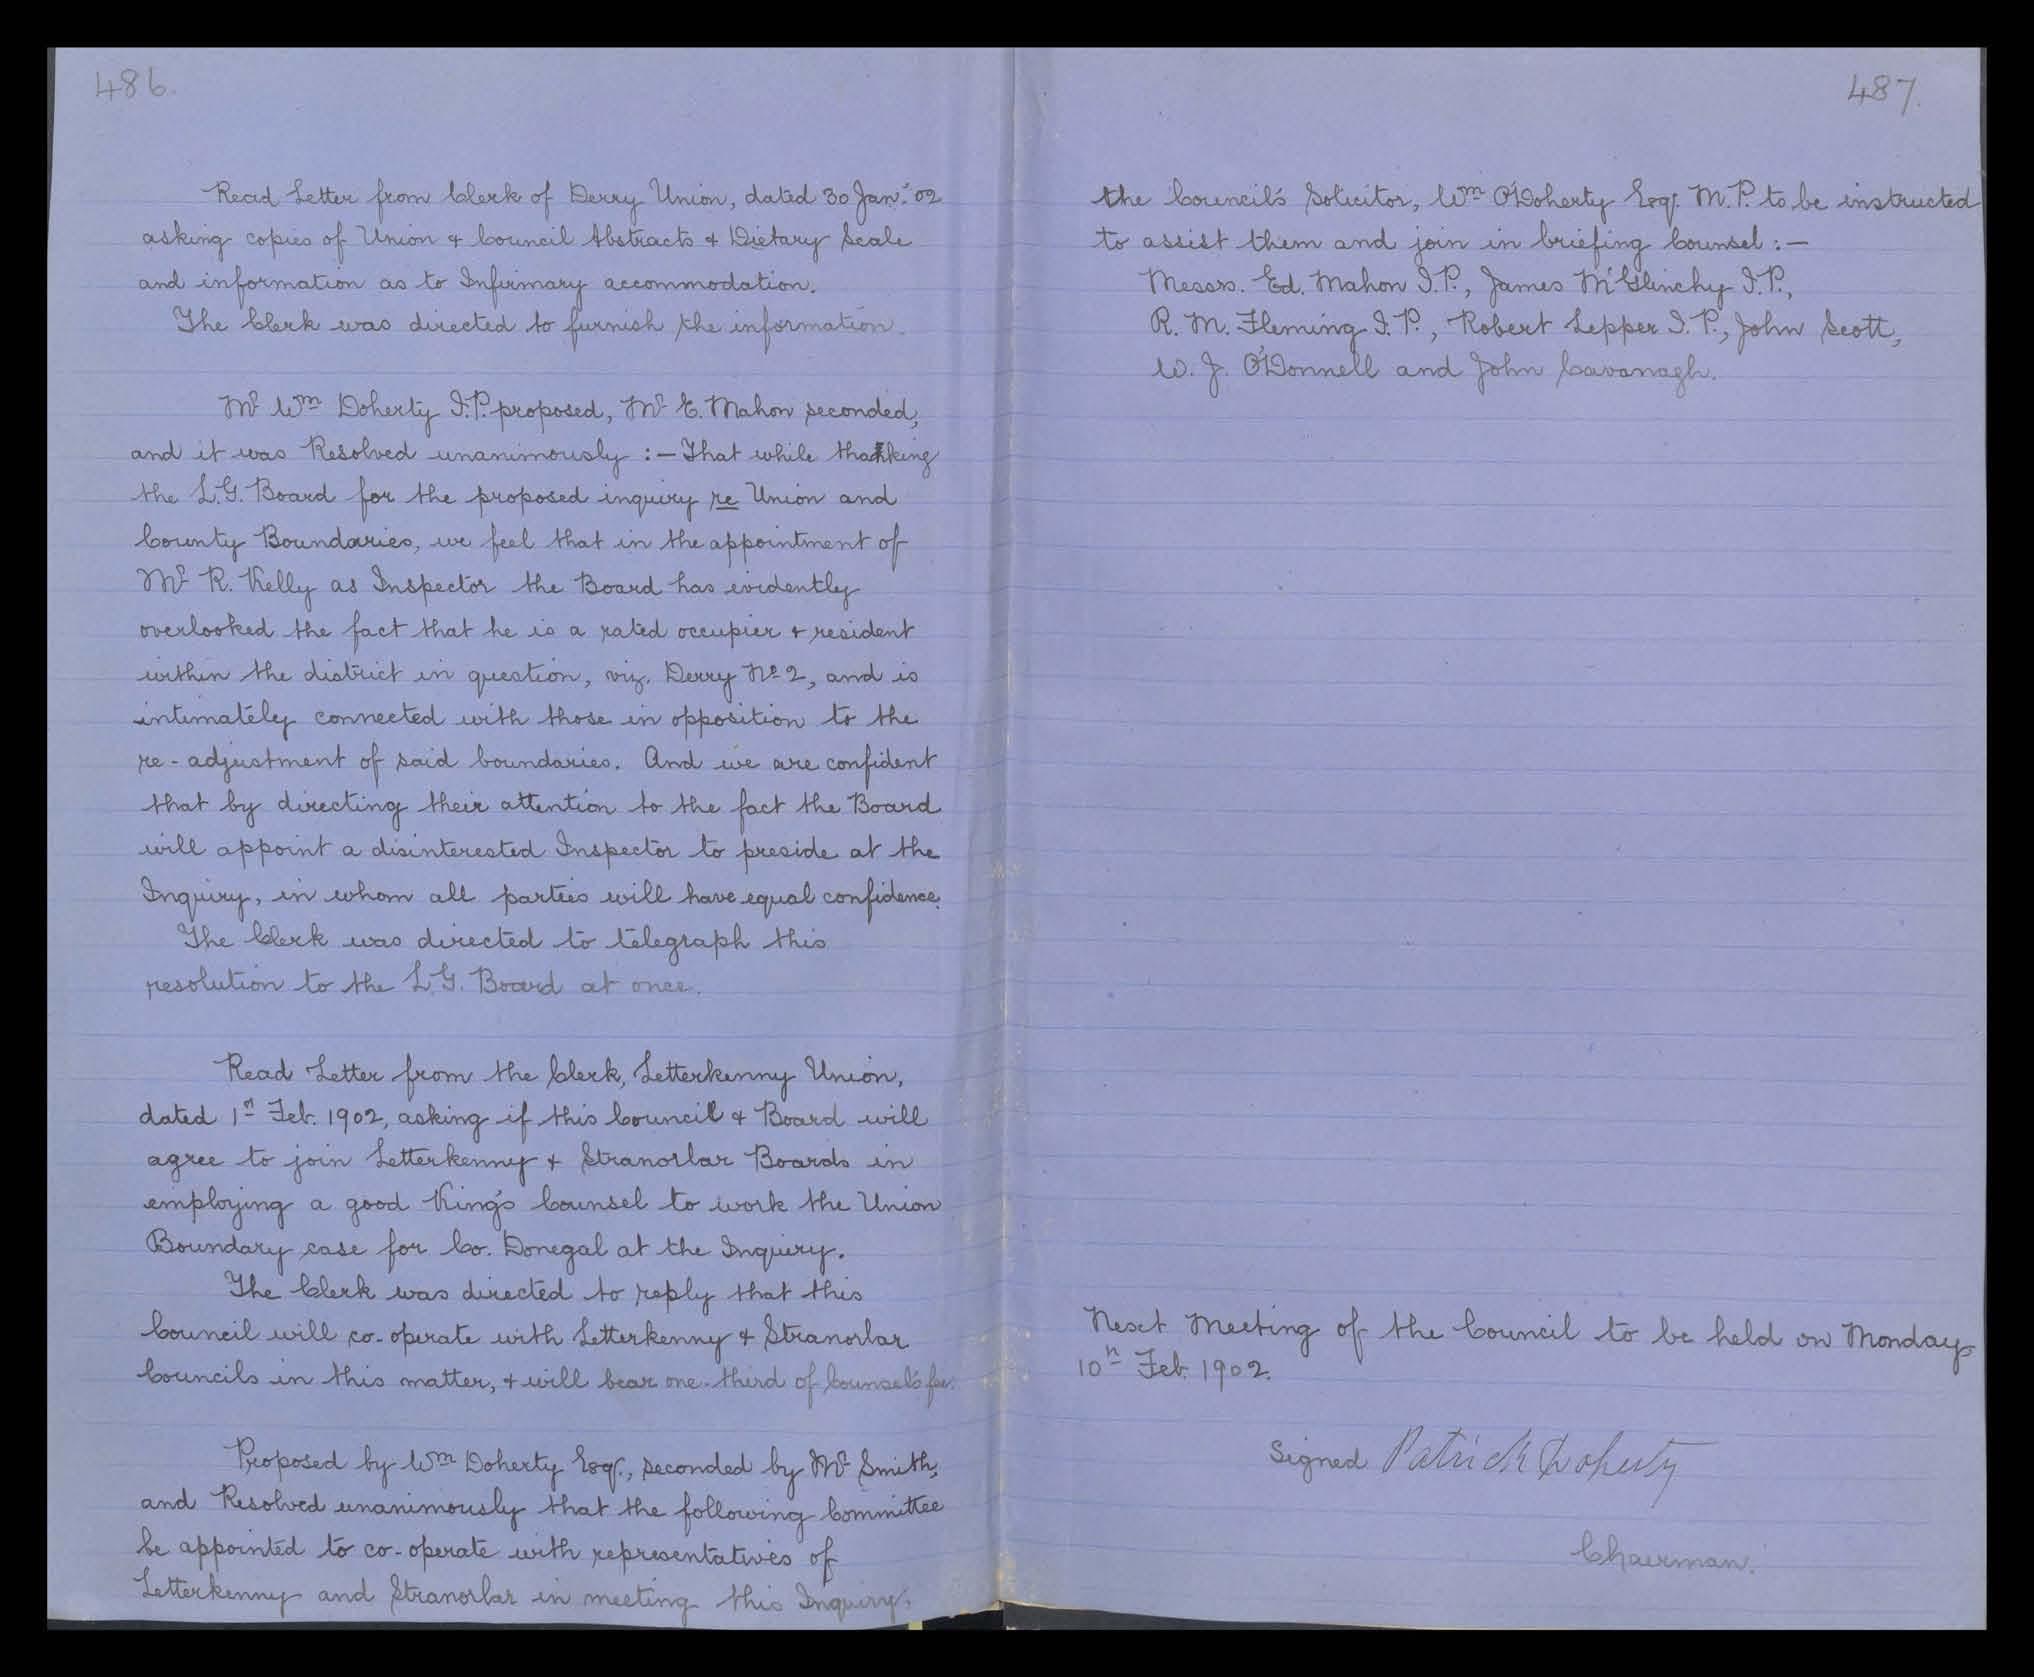 486.
Read Letter from Clerk of Derry Union, dated 30 Jany. '02
asking copies of Union & Council Abstracts & Dietary Scale
and information as to Infirmary accommodation.
The Clerk was directed to furnish the information.
Mr Wm Doherty J.P. proposed, Mr E. Mahon seconded,
and it was Resolved unanimously :— That while thanking
the L.G. Board for the proposed inquiry re Union and
County Boundaries, we feel that in the appointment of
Mr R. Kelly as Inspector the Board has evidently
overlooked the fact that he is a rated occupier & resident
within the district in question, viz. Derry No 2, and is
intimately connected with those in opposition to the
re-adjustment of said boundaries. And we are confident
that by directing their attention to the fact the Board
will appoint a disinterested Inspector to preside at the
Inquiry, in whom all parties will have equal confidence.
The Clerk was directed to telegraph this
resolution to the L.G. Board at once.
Read Letter from the Clerk, Letterkenny Union,
dated 1st Feb. 1902, asking if this Council & Board will
agree to join Letterkenny & Stranorlar Boards in
employing a good King's Counsel to work the Union
Boundary case for Co. Donegal at the Inquiry.
The Clerk was directed to reply that this
Council will co-operate with Letterkenny & Stranorlar
Councils in this matter, & will bear one-third of Counsel's fee.
Proposed by Wm Doherty Esqr., seconded by Mr Smith,
and Resolved unanimously that the following Committee
be appointed to co-operate with representatives of
Letterkenny and Stranorlar in meeting this Inquiry.
487.
the Council's Solicitor, Wm O'Doherty Esqr. M.P. to be instructed
to assist them and join in briefing Counsel :—
Messrs. Ed. Mahon J.P., James McGlinchy J.P.,
R. M. Fleming J.P., Robert Lepper J.P., John Scott,
W. J. O'Donnell and John Cavanagh.
Next Meeting of the Council to be held on Monday
10th Feb. 1902.
Signed Patrick Doherty
Chairman.